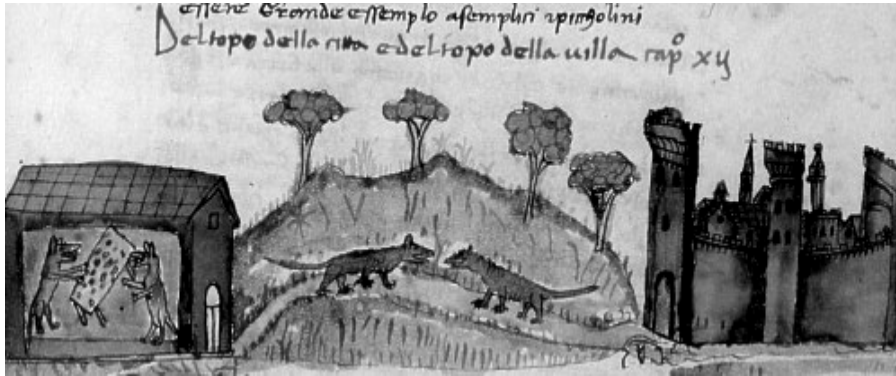 essere Grande essemplo asemplici 
Del topo della citta e del topo della uilla cap° xij